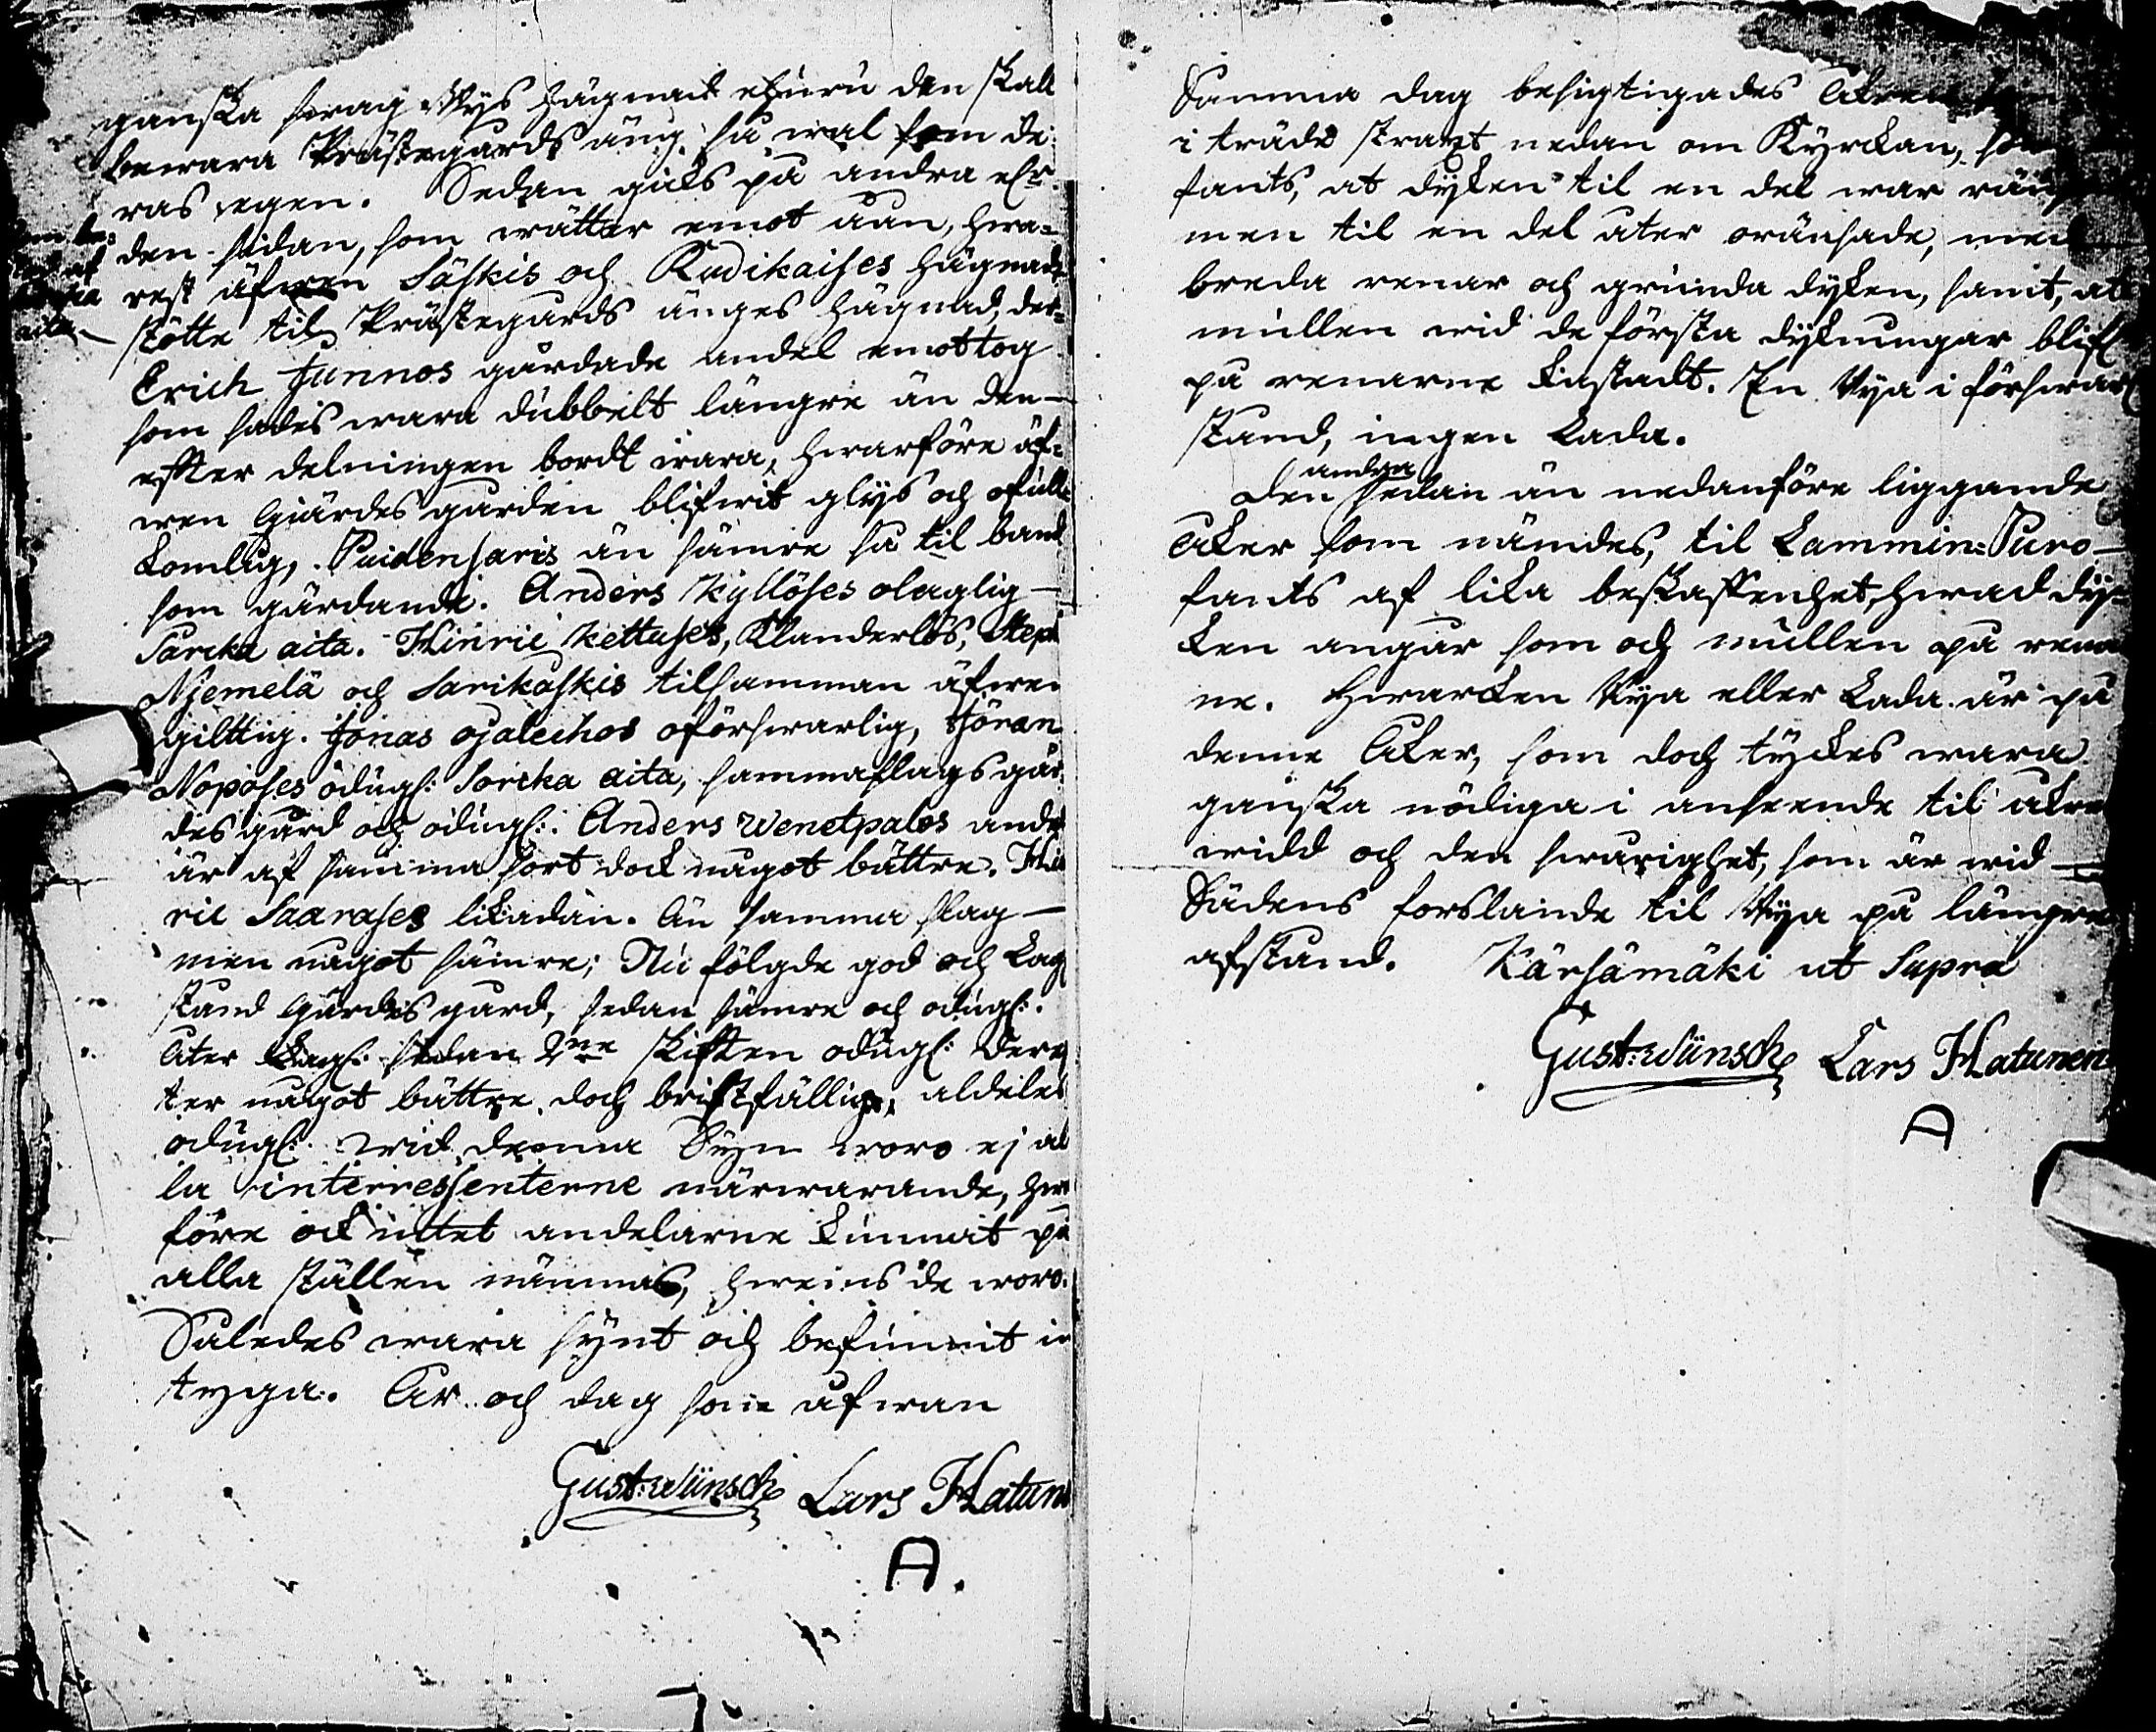 ganska swag Rys hägnad ehuru den skall
bewara Prästegårds äng så wäl som de
ras egen. Sedan gicks på andra
den sidan, som wätter emot åån, hwa-
rest äfwen Säskis och Rudikaises hägnad
stötte til Prästegårds änges hägnad, der-
Erich Junnos gärdade andel emottog
som sades wara dubbelt längre än den
efter delningen bordt wara, hwarföre äf-
wen Giärdesgården blifwit glys och ofull-
komlig, Puidensaris än sämre så til band
som gärdande. Anders Kyllöses olaglig
Parcka aita. Hinric Kettuses, Klanderlös, Steph
Njemelä och Sarikaskis tilsamman äfwen
gilttig. Jonas ojalechos oförswarlig, Jöran
Noposes odugl: Sorcka aita, sammaslags gär
desgård och odugl: Anders Wenetpalos andel
är af samma sort dock något bättre. Hin
ric Saarases likadan. Än samma slag
men något sämre; Nu fölgde god och Lag
stånd Gärdesgård, sedan sämre och odugl:
Åter Lagl: sedan 2ne skiften odugl: Deref
ter något bättre, doch bristfällige, aldeles
odugl: Wid denna Syn woro ej al
la interressenterne närwarande, hwar
före ock intet andelarne kunnat på
alla ställen nämnas, hwems de woro.
Således wara synt och befunnit in
tyga. År och dag som ofwan
Gust: Wünsch Lars Hatun
A.
Samma dag besigtigades Åkren
i träde straxt nedan om Kyrckan, som
fants, at dyken til en del war rän
men til en del åter oränsade, med
breda renar och grunda dyken, samt, at
mullen wid de första dykningar blif
på renarne kastadt. En Rya i förswarl
stånd, ingen Lada.
andra
Den sedan än nedanföre liggande
Åker som nämdes, til Lammin-Puro
fants af lika beskaffenhet, hwad dy-
ken angår som och mullen på rena
ne. Hwarcken Rya eller Lada är på
denne Åker, som doch tyckes wara
ganska nödiga i anseende til åkre
widd och den swårighet, som är wid
Sädens forslande til Rya på längre
afstånd. Kärsämäki ut Supra
Gust: Wünsch Lars Hatunen
A